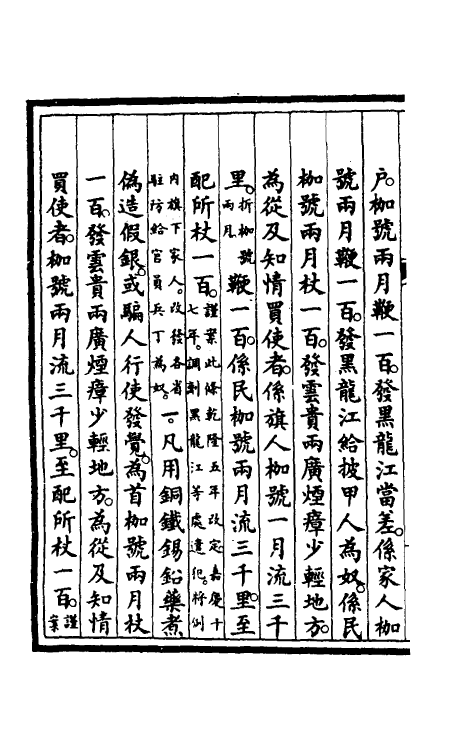 戶。枷號兩月鞭一百。發黑龍江當差。係家人枷
號兩月鞭一百。發黑龍江給披甲人為奴。係民
枷號兩月杖一百。發雲貴兩廣煙瘴少輕地方。
為從及知情買使者。係旗人枷號一月流三千
里。折枷號兩月。鞭一百。係民枷號兩月流三千里。至
配所杖一百。謹案此條乾隆五年改定嘉慶十七年。調劑黑龍江等處遣犯。將例
內旗下家人。改發各省駐防給官員兵丁為奴。一。凡用銅鐵錫鉛藥煮
偽造假銀。或騙人行使發覺。為首枷號兩月杖
一百。發雲貴兩廣煙瘴少輕地方。為從及知情
買使者。枷號兩月流三千里。至配所杖一百。謹案